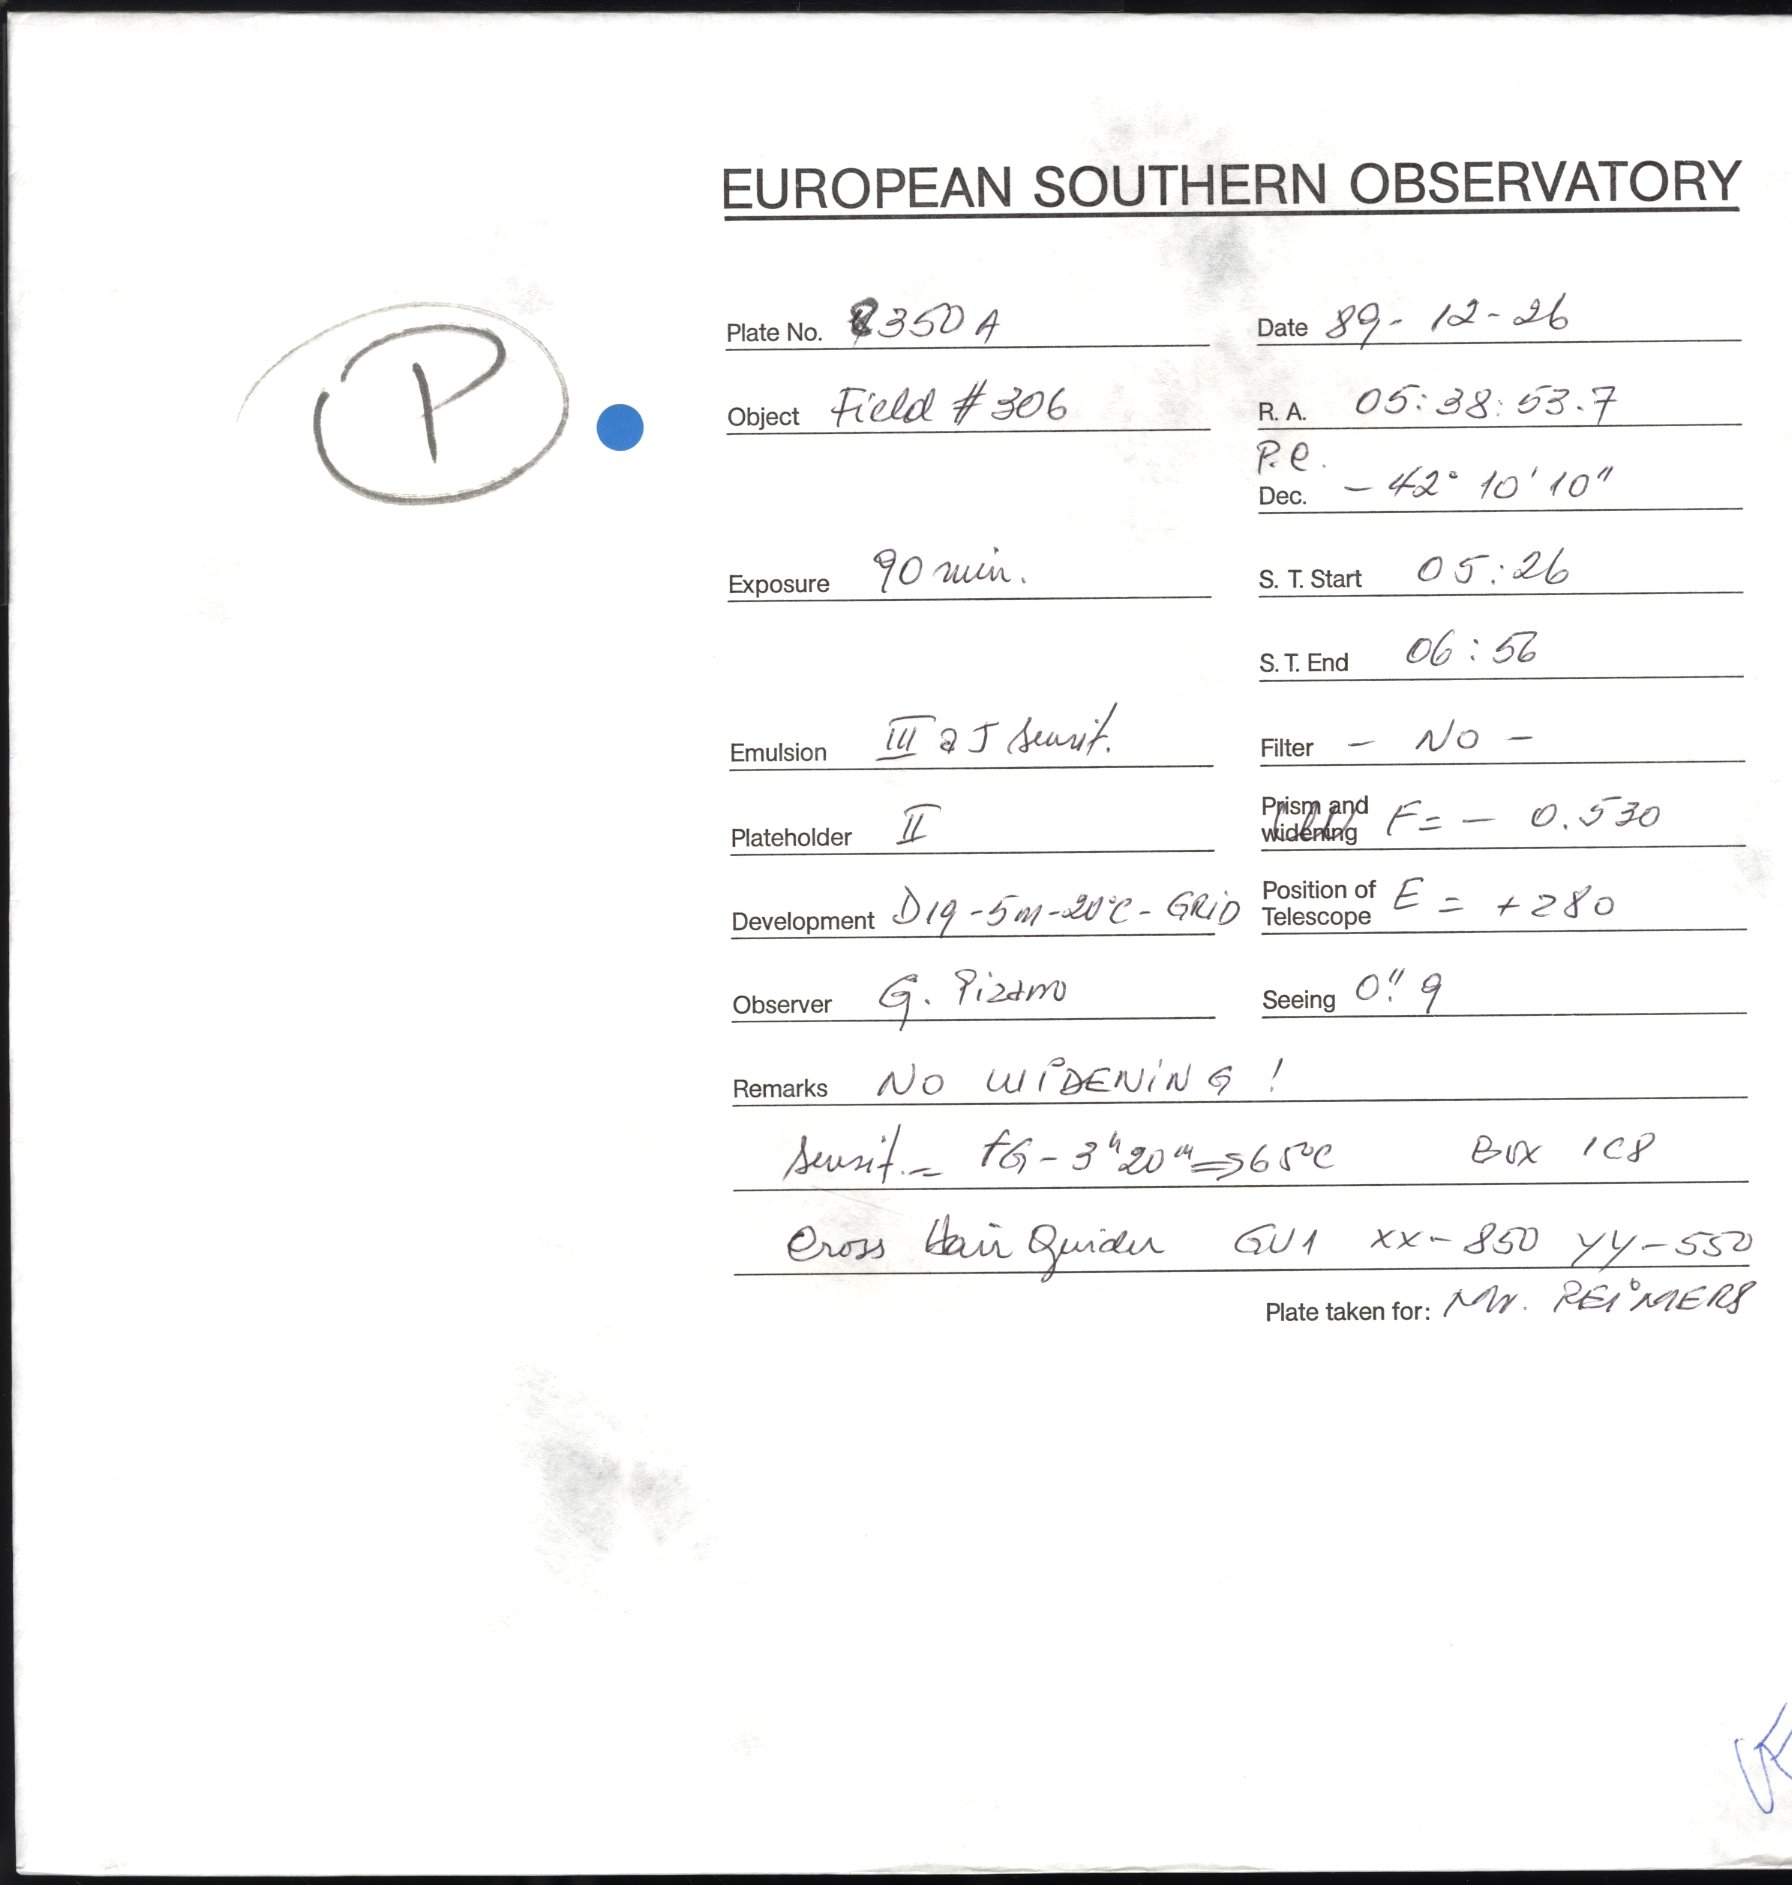 EUROPEAN SOUTHERN OBSERVATORY
P
Plate No. 8350 A Date 89-12-26
Object Field # 306 R. A. 05:38:53.7
P.e.
Dec. - 42° 10' 10"
Exposure 90 min. S. T. Start 05:26
S. T. End 06:56
Emulsion III a J sensit. Filter - NO -
Plateholder II Prism and widening F= - 0.530
Development D19-5m-20°C-GRiD Position of Telescope E = +280
Observer G. Pizarro Seeing 0".9
Remarks NO WiDENiNG !
sensit.= FG-3h20m⇒65°C BOX 1C8
Cross Hair Guider GU1 XX-850 YY-550
Plate taken for: Mr. REiMERS